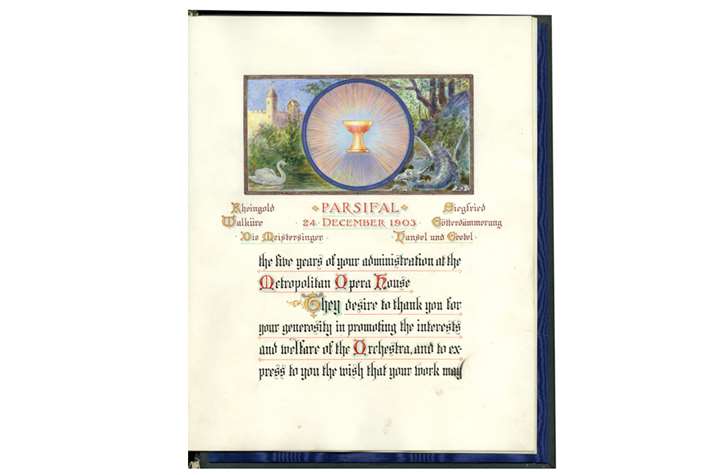 Rheingold
PARSIFAL
Siegfried
Walküre
24 · DECEMBER 1903
Götterdämmerung
· Die Meistersinger ·
· Hansel und Gretel ·
the five years of your administration at the
Metropolitan Opera House
They desire to thank you for
your generosity in promoting the interests
and welfare of the Orchestra, and to ex-
press to you the wish that your work may